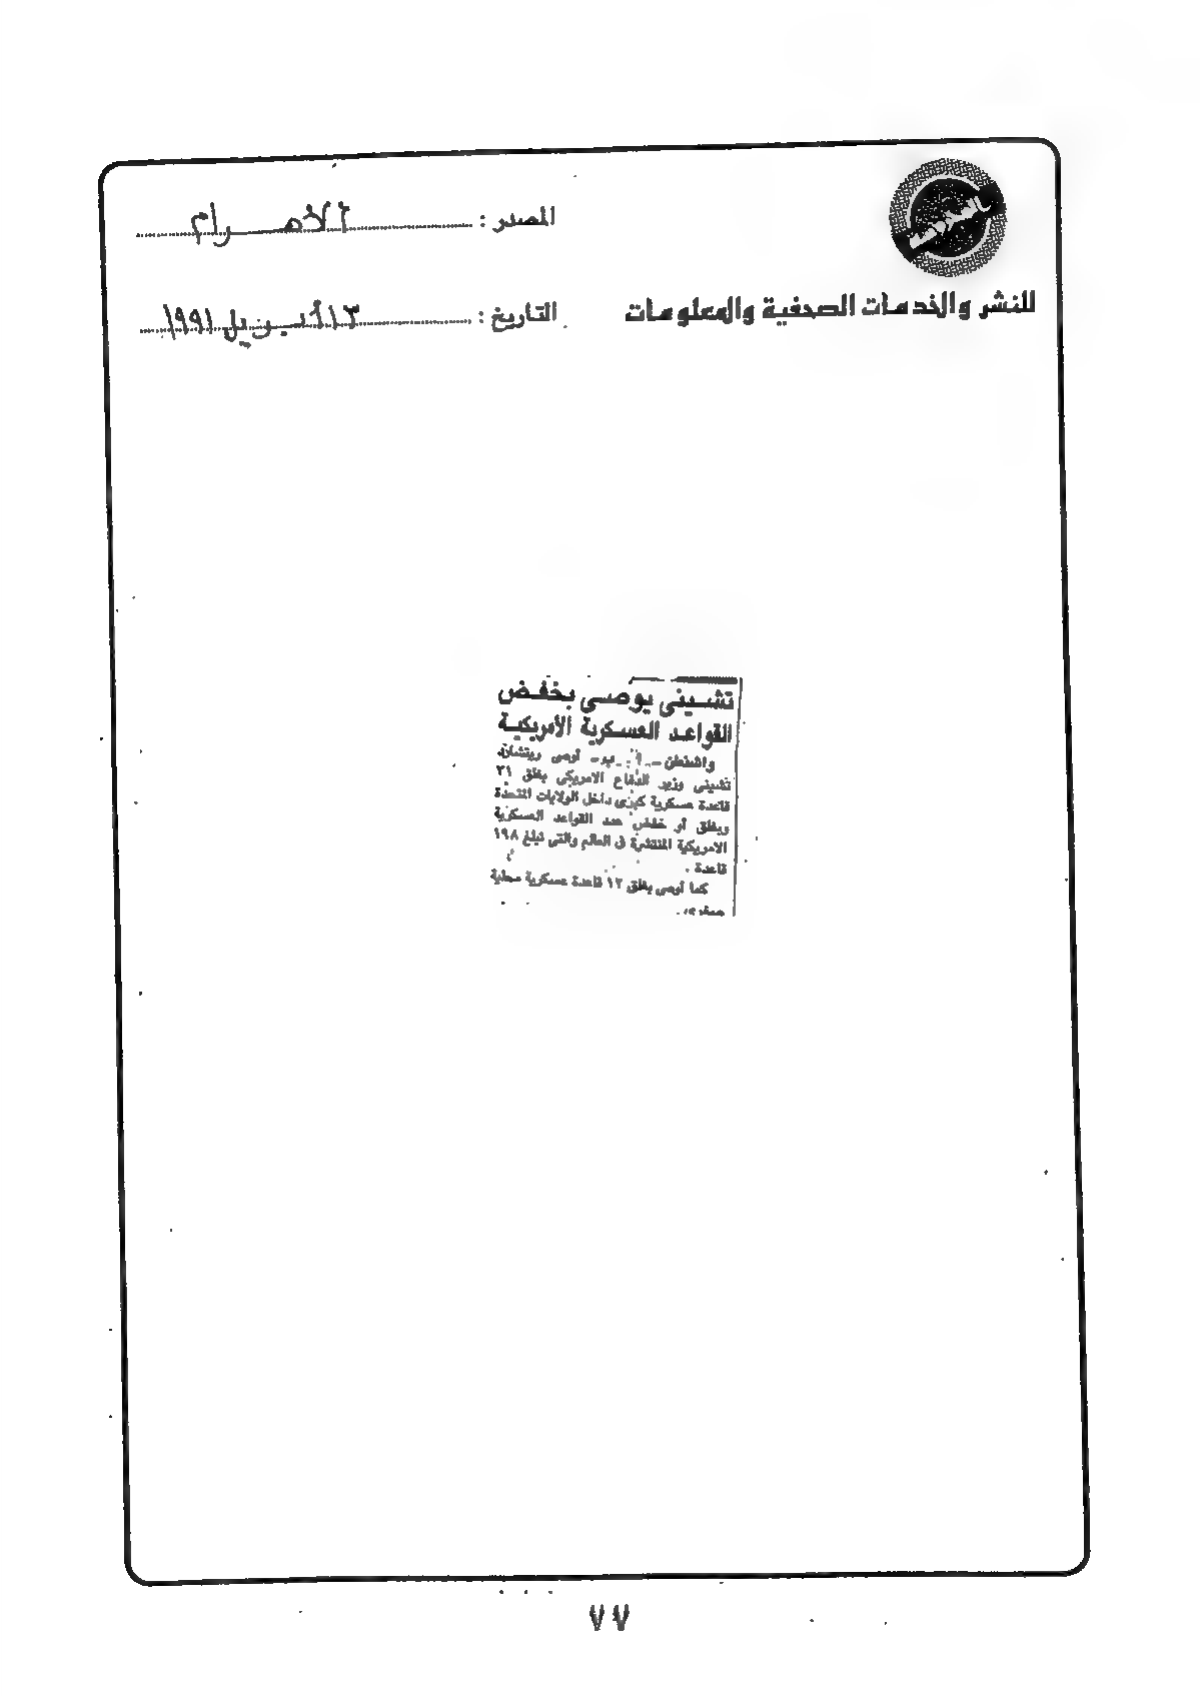 المصدر : الأهرام
للنشر والخدمات الصحفية والمعلومات
التاريخ : ١٣ أبريل ١٩٩١
تشينى يوصى بخفض
القواعد العسكرية الأمريكية
واشنطن ـ أ . ب ـ أوصى ريتشارد
تشينى وزير الدفاع الامريكى بغلق ٣١
قاعدة عسكرية كبرى داخل الولايات المتحدة
وبغلق أو خفض عدد القواعد العسكرية
الامريكية المنتشرة فى العالم والتى تبلغ ١٩٨
قاعدة .
كما أوصى بغلق ١٢ قاعدة عسكرية محلية
صغرى .
٧٧